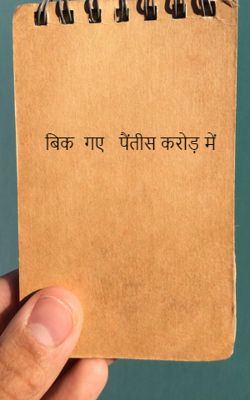 बिक गए पैंतीस करोड़ में